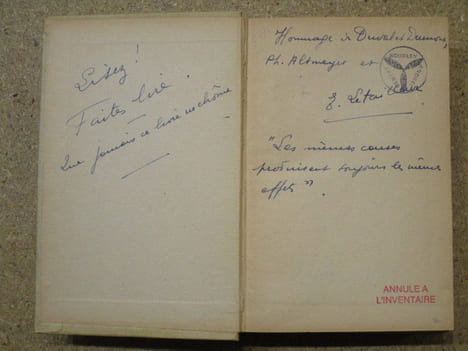 Lisez !
Faites lire.
Que jamais ce livre ne chôme
Hommage de Duvel et Dumons,
Ph. Altmeyer et
"Les mêmes causes
produisent toujours les mêmes
effets".
ANNULE A
L'INVENTAIRE